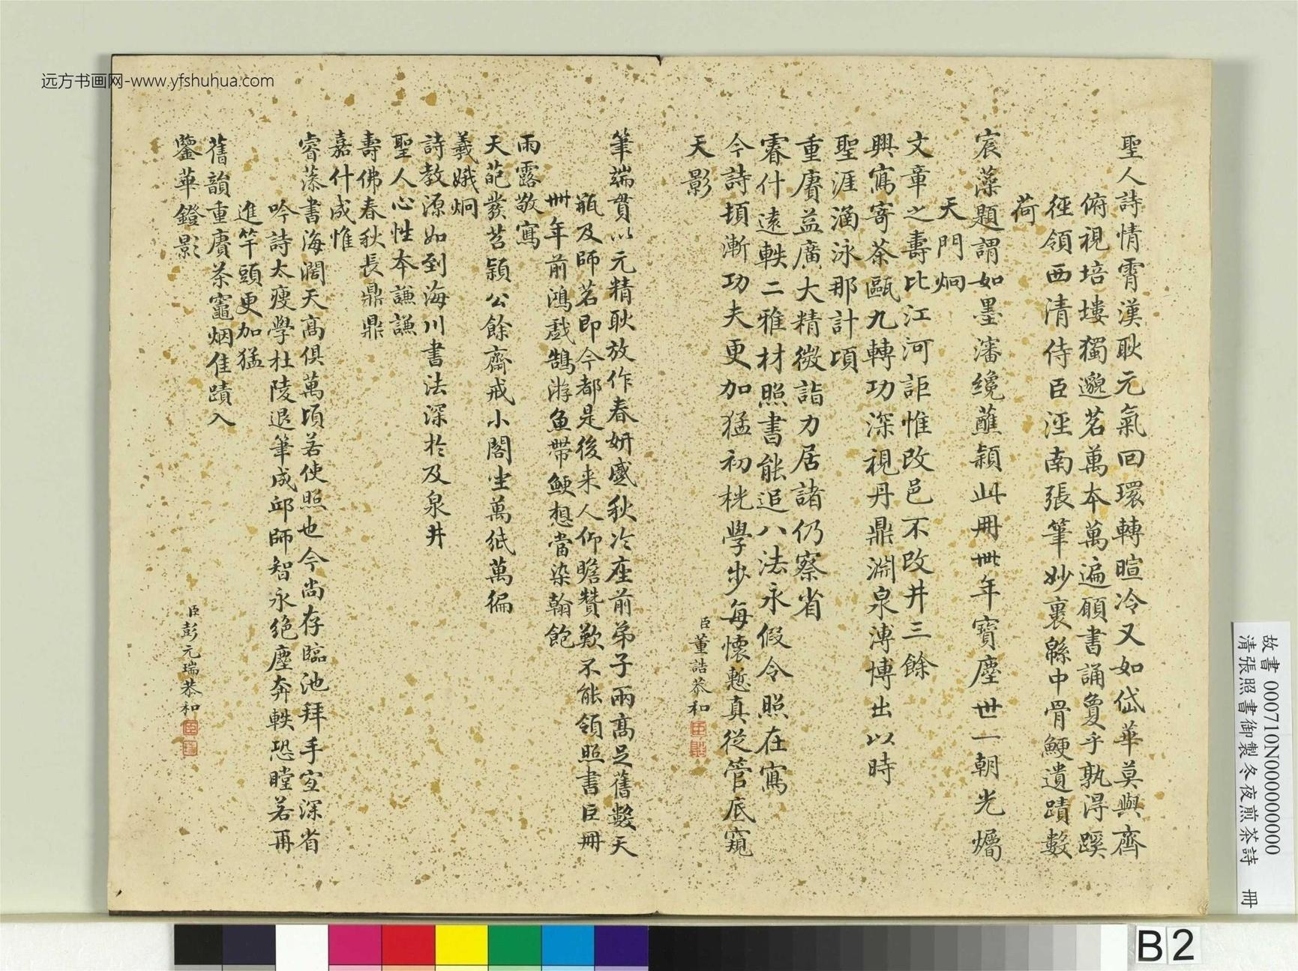 远方书画网-www.yfshuhua.com
聖人詩情霄漢耿元氣回環轉暄冷又如岱華莫與齊
俯視培塿獨邈茗萬本萬遍願書誦夐乎孰得蹊
徑領西清侍臣涇南張筆妙裏緜中骨鯁遺蹟數
荷
宸藻題謂如墨瀋纔蘸穎此冊卌年寶塵世一朝光爥
天門炯
文章之壽比江河詎惟改邑不改井三餘
興寓寄茶甌九轉功深視丹鼎淵泉溥博出以時
聖涯涵泳那計頃
重賡益廣大精微詣力居諸仍察省
睿什遠軼二雅材照書能追八法永假令照在寫
今詩頓漸功夫更加猛初桄學步每懷慙真從管底窺
天影
臣董誥恭和
筆端貫以元精耿放作春妍盛秋冷座前弟子兩高足舊數天
瓶及師茗即今都是後来人仰瞻贊歎不能領照書巨冊
卌年前鴻戲鵠游魚帶鯁想當染翰飽
雨露敬寫
天葩發苕穎公餘齋戒小閣坐萬紙萬徧
羲娥炯
詩教源如到海川書法深於及泉井
聖人心性本謙謙
壽佛春秋長鼎鼎
嘉什成惟
睿藻書海闊天高俱萬頃若使照也今尚存臨池拜手宜深省
吟詩太瘦學杜陵退筆成邱師智永絶塵奔軼恐瞠若再
進竿頭更加猛
舊韻重賡茶竈烟隹蹟入
鑒華鐙影
臣彭元瑞恭和
故書 000710N000000000
清張照書御製冬夜煎茶詩 冊
B2